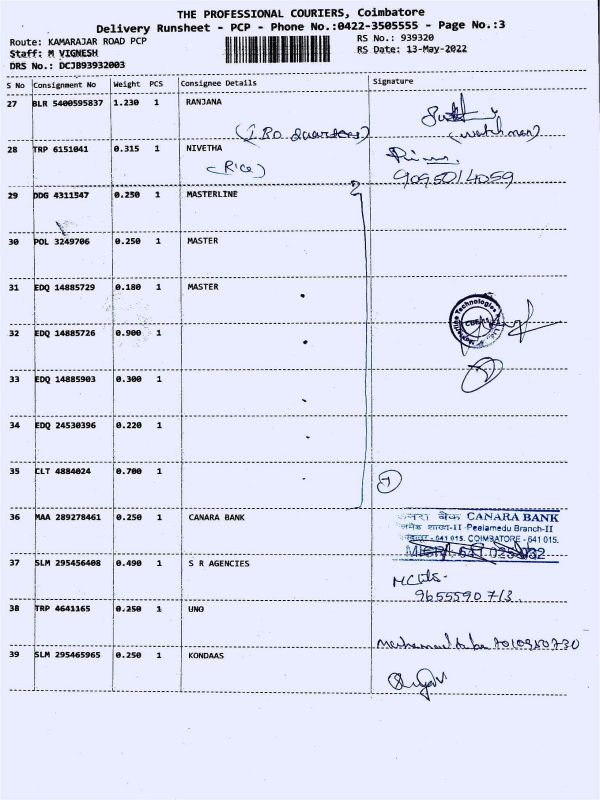 THE PROFESSIONAL COURIERS, Coimbatore
Delivery Runsheet - PCP - Phone No.:0422-3505555 - Page No.:3
Route: KAMARAJAR ROAD PCP
RS No.: 939320
Staff: M VIGNESH
RS Date: 13-May-2022
DRS No.: DCJB93932003
S No Consignment No Weight PCS Consignee Details Signature
27 BLR 5400595837 1.230 1 RANJANA
(watchman)
28 TRP 6151041 0.315 1 NIVETHA
(Rice)
9095014059
29 DDG 4311547 0.250 1 MASTERLINE
30 POL 3249706 0.250 1 MASTER
31 EDQ 14885729 0.180 1 MASTER
32 EDQ 14885726 0.900 1
33 EDQ 14885903 0.300 1
34 EDQ 24530396 0.220 1
35 CLT 4884024 0.700 1
7
36 MAA 289278461 0.250 1 CANARA BANK
केनरा बैंक CANARA BANK
शाखा-II Peelamedu Branch-II
- 641 015. COIMBATORE - 641 015.
37 SLM 295456408 0.490 1 S R AGENCIES
9655590713
38 TRP 4641165 0.250 1 UNO
7010980730
39 SLM 295465965 0.250 1 KONDAAS